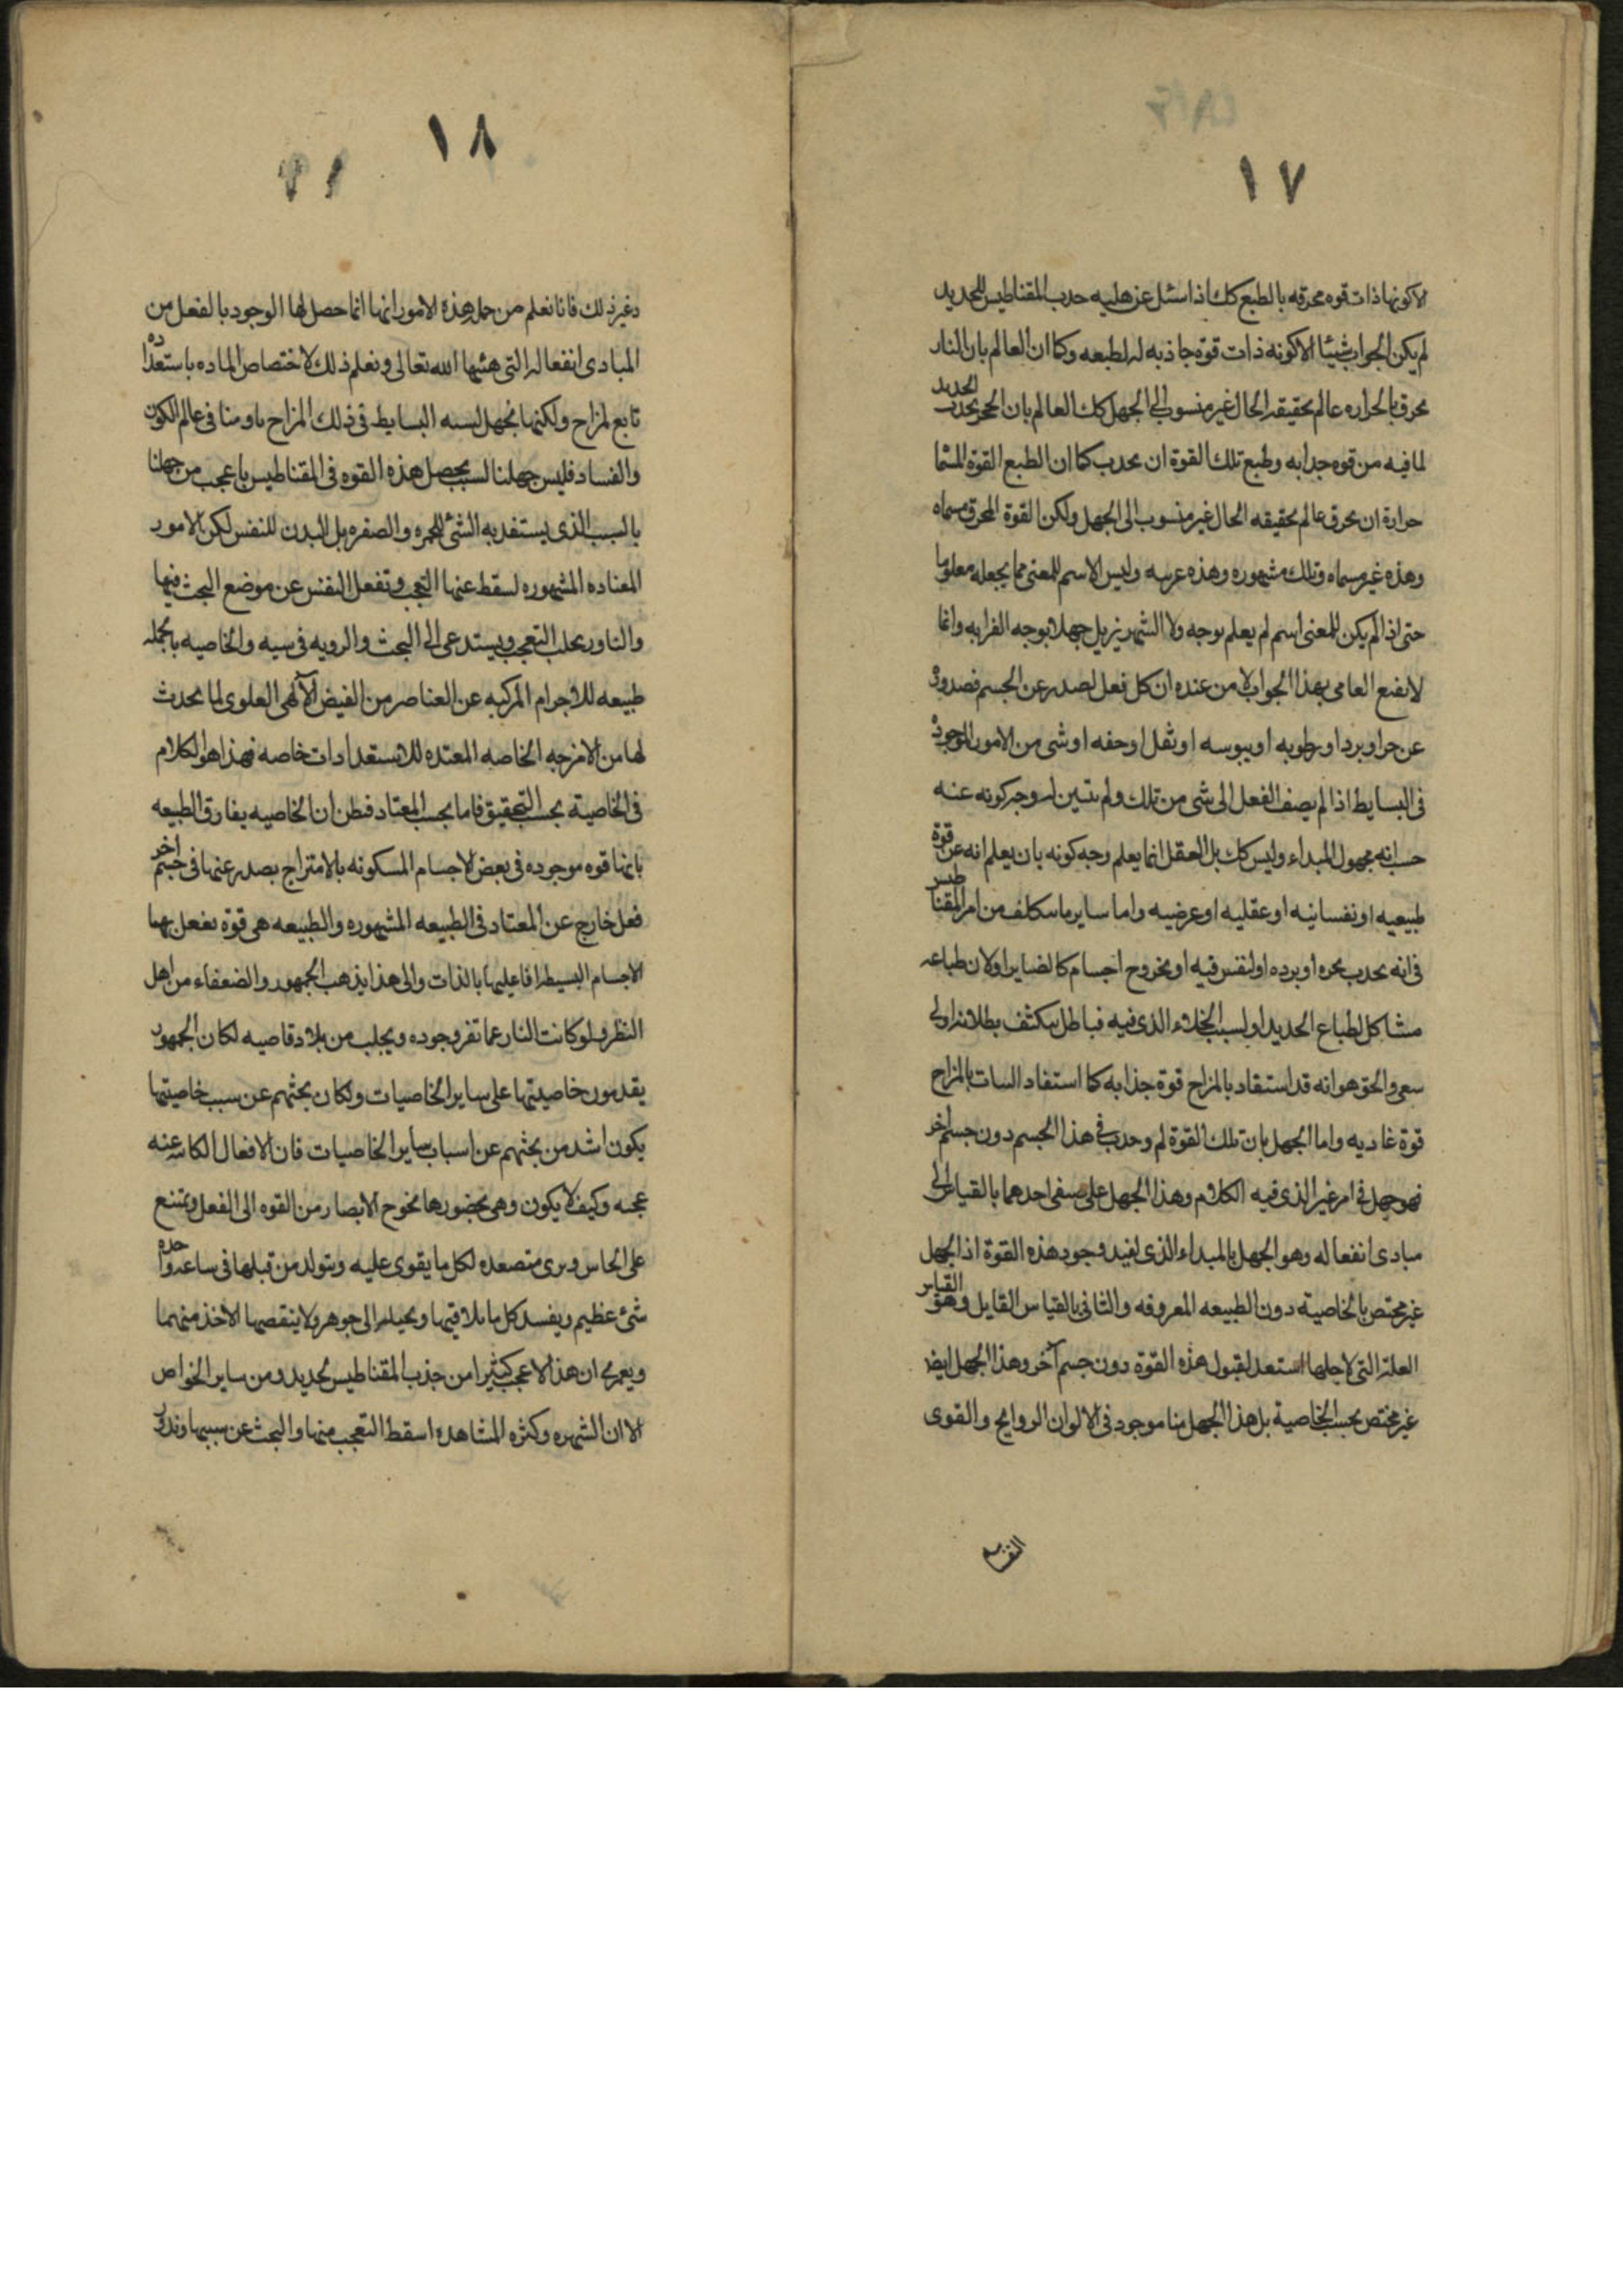 ١٧
الا كونها ذات قوه محرقه بالطبع كك اذا سئل عن هليه حدب المقناطيس للحديد
لم يكن الجواب شيئا الا كونه ذات قوة جاذبه له لطبعه وكما ان العالم بان النار
محرق بالحراره عالم بحقيقه الحال غير منسوب الى الجهل كك العالم بان الحجر يحدب الحديد
لما فيه من قوه جدابه وطبع تلك القوة ان يحدب كما ان الطبع القوة المسما
حرارة ان يحرق عالم بحقيقه الحال غير منسوب الى الجهل ولكن القوة المحرق مسماه
وهذه غير مسماه وتلك مشهوره وهذه عرىبه وليس الاسم للمعنى مما يجعله معلوما
حتى اذا لم يكن للمعنى اسم لم يعلم بوجه ولا الشهره تزيل جهلا بوجه الغرابه وانما
لا يقنع العامى بهذا الجواب لا من عنده ان كل فعل لصدر عن الجسم فصدوره
عن حر او برد او رطوبه او يبوسه او ثقل او حفه او شى من الامور الموجوده
فى البسايط اذا لم يصف الفعل الى شى من تلك ولم يتبين له وجه كونه عنه
حسب انه مجهول المبداء وليس كك بل العقل انما يعلم وجه كونه بان يعلم انه عن قوة
طبيعيه او نفسانيه او عقليه او عرضيه واما ساير ما سكلف من امر المقناطيس
فى انه يحدب بحره او برده او لنفس فيه او بخروح اجسام كالضاير او لان طباعه
مشاكل لطباع الحديد او لسبب الخلاء الذى فيه فباطل سكشف بطلانه اولى
سعى والحق هو انه قد استفاد بالمزاح قوة جذابه كما استفاد السات بالمزاح
قوة غاديه واما الجهل بان تلك القوة لم وحدت فى هذا الجسم دون جسم اخر
فهو جهل فى امر غير الذى فيه الكلام وهذا الجهل على صفى احدهما بالقياس الى
مبادى انفعاله وهو الجهل بالمبداء الذى لفيد وجود هذه القوة اذ الجهل
غير مختص بالخاصية دون الطبيعه المعروفه والثانى بالقياس القابل وهو القياس
العلة التى لاجلها استعد لقبول هذه القوة دون جسم آخر وهذا الجهل ايضا
غير مختص بحسب الخاصية بل هذا الجهل منا موجود فى الالوان الروايح والقوى
١٨
وغير ذلك فانا نعلم من جمله هذه الامور انها انما حصل لها الوجود بالفعل من
المبادى انفعاله التى هئيها الله تعالى ونعلم ذلك لاختصاص الماده باستعداده
تابع لمزاح ولكنها نجهل لسبه البسايط فى ذلك المزاح ما ومنا فى عالم الكون
والفساد فليس جهلنا لسبب يحصل هذه القوه فى المقناطيس باعجب من جهلنا
بالسبب الذى يستفد به الشئ للحمره والصفره بل البدن للنفس لكن الامور
المعتاده المشهوره لسقط عنها التعجب وتغفل النفس عن موضع البحث فيها
والنادر يجلب التعجب ويستدعى الى البحث والرويه فى سببه والخاصيه بالجمله
طبيعه للاجرام المركبه عن العناصر من الفيض الآلهى العلوى لما يحدث
لها من الامزجه الخاصه المعتده للاستعدادات خاصه فهذا هو الكلام
فى الخاصية بحسب التحقيق فاما بحسب المعتاد فظن ان الخاصيه يفارق الطبيعه
بانها قوه موجوده فى بعض الاجسام المسكونه بالامتزاج يصدر عنها فى جسم اخر
فعل خارج عن المعتاد فى الطبيعه المشهوره والطبيعه هى قوة يفعل بها
الاجسام البسيطه افاعليها بالذات والى هذا يذهب الجمهور والضعفاء من اهل
النظر ولو كانت النار عما تفرو جوده ويجلب من بلاد قاصيه لكان الجمهور
يقدمون خاصيتها على ساير الخاصيات ولكان بحثهم عن سبب خاصيتها
يكون اشد من بحثهم عن اسباب ساير الخاصيات فان الافعال الكاىنه عنه
عجبه وكيف لا يكون وهى بحضورها تخوح الابصار من القوه الى الفعل وتمتنع
على الحاس وىرى متصعده لكل ما يقوى عليه ويتولد من قبلها فى ساعه واحده
شئ عظيم ويفسد كل ما يلاقيها ويحيله الى جوهره ولا ينقصها الاخذ منهما
ويعمرى ان هذا لا عجب كثيرا من جذب المقناطيس لحديد ومن ساير الخواص
الا ان الشهره وكثره المشاهده اسقط التعجب منها والبحث عن سببها وندور